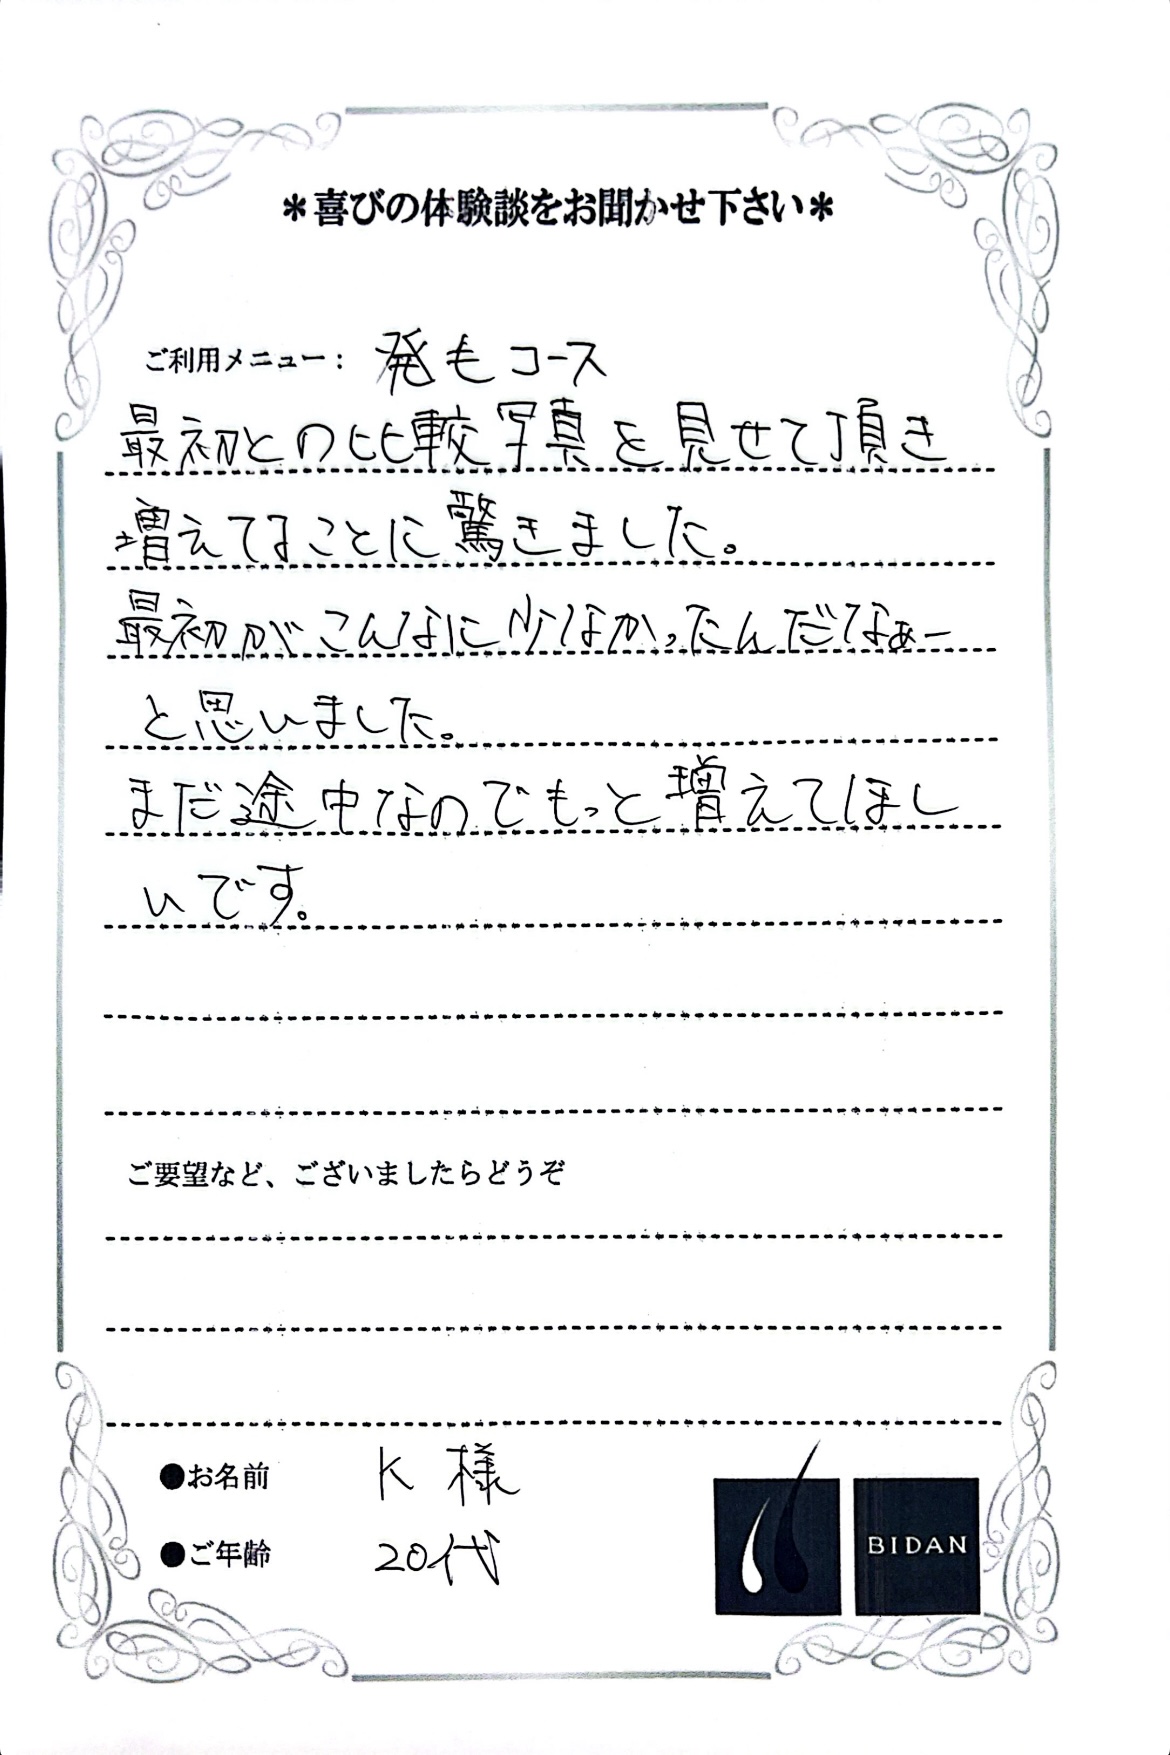 ＊喜びの体験談をお聞かせ下さい＊
ご利用メニュー： 発毛コース
最初との比較写真を見せて頂き
増えてることに驚きました。
最初がこんなに少なかったんだなぁー
と思いました。
まだ途中なのでもっと増えてほし
いです。
ご要望など、ございましたらどうぞ
●お名前 K様
●ご年齢 20代
BIDAN